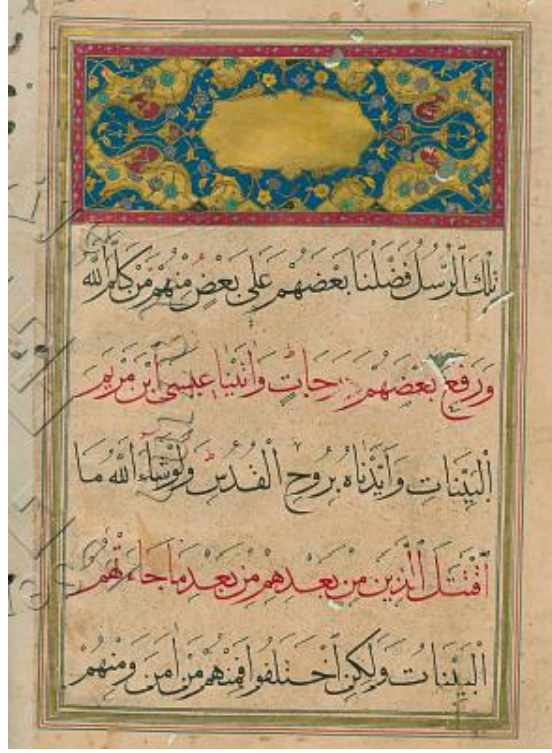 تِلْكَ الرُّسُلُ فَضَّلْنَا بَعْضَهُمْ عَلَى بَعْضٍ مِنْهُمْ مَنْ كَلَّمَ اللَّهُ
وَرَفَعَ بَعْضَهُمْ دَرَجَاتٍ وَآتَيْنَا عِيسَى ابْنَ مَرْيَمَ
الْبَيِّنَاتِ وَأَيَّدْنَاهُ بِرُوحِ الْقُدُسِ وَلَوْ شَاءَ اللَّهُ مَا
اقْتَتَلَ الَّذِينَ مِنْ بَعْدِهِمْ مِنْ بَعْدِ مَا جَاءَتْهُمُ
الْبَيِّنَاتُ وَلَكِنِ اخْتَلَفُوا فَمِنْهُمْ مَنْ آمَنَ وَمِنْهُمْ